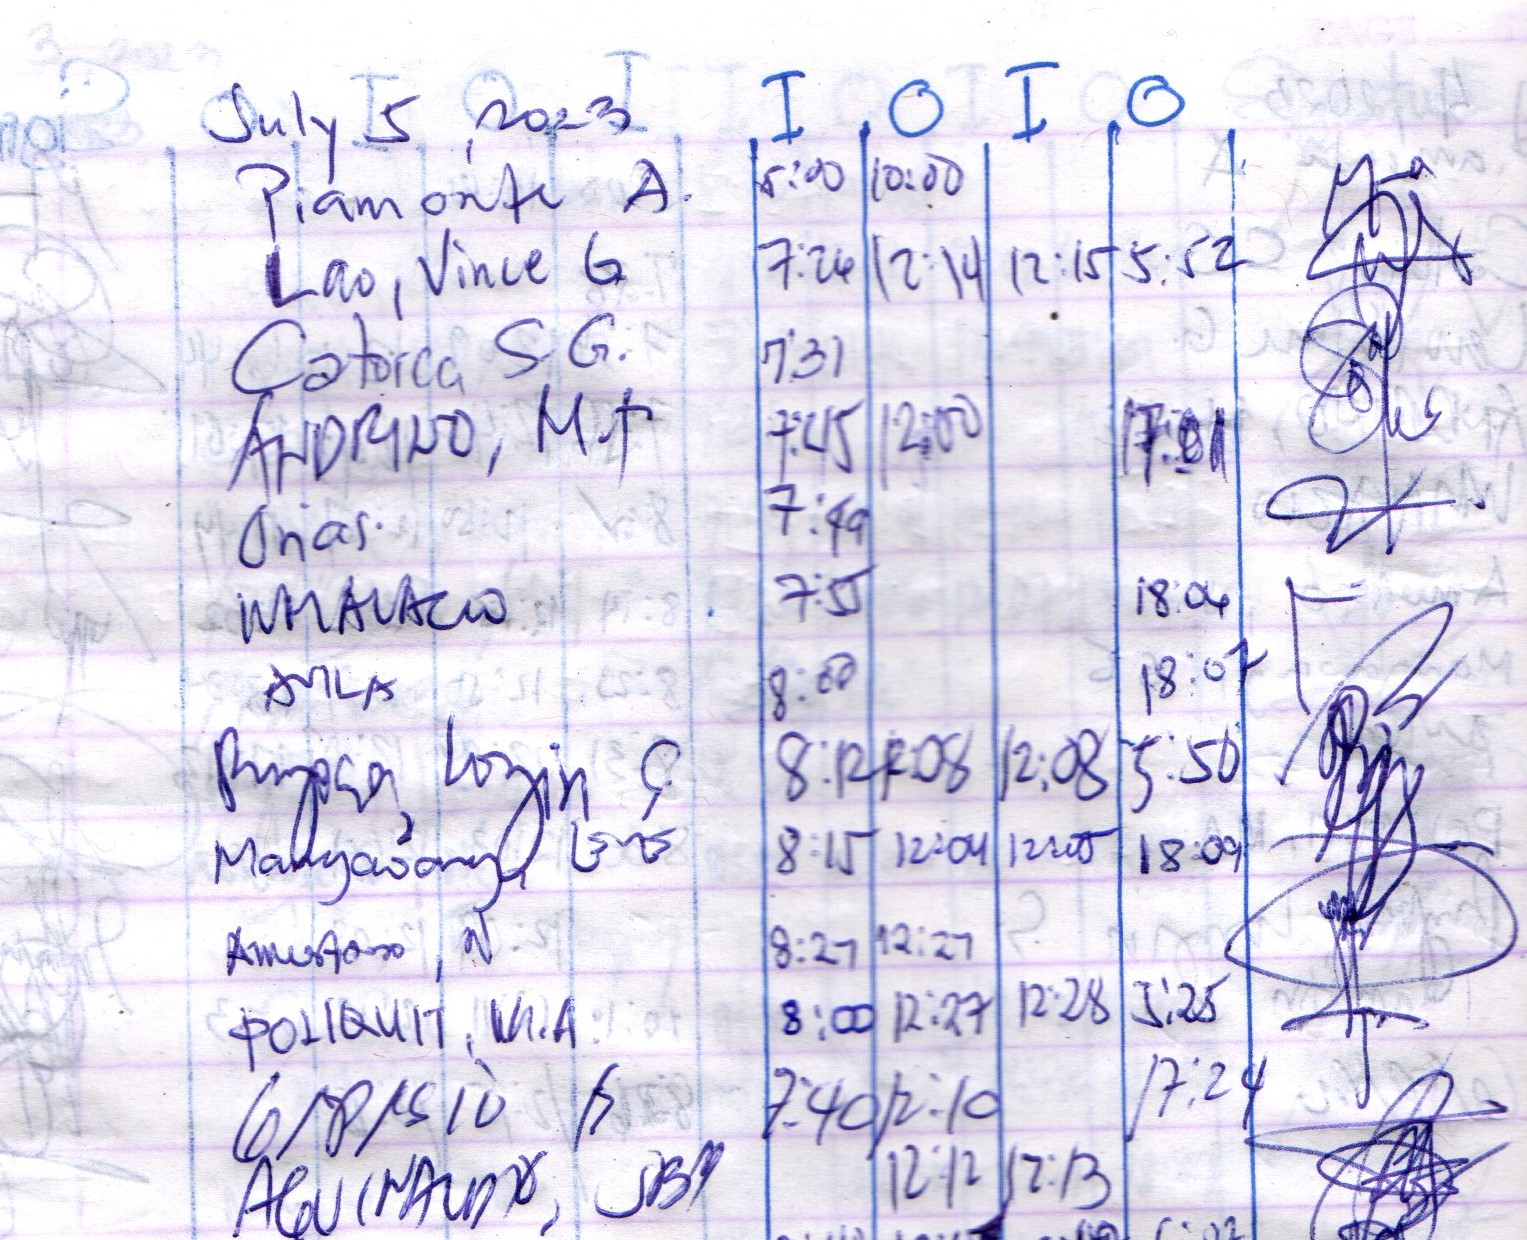 July 5, 2023 I O I O
Piamonte A. 5:00 10:00
Lao, Vince G 7:26 12:14 12:15 5:52
Catorca S.G. 7:31
ANDRINO, M.T 7:45 12:00 17:01
Orias. 7:49
7:55 18:04
AVILA 8:00 18:07
8:12 12:08 12:08 5:50
Mangabang, 8:15 12:04 12:05 18:09
Amistoso, N 8:27 12:27
POLIQUIT, M.A 8:00 12:27 12:28 5:25
7:40 12:10 17:24
AGUINALDO, JBM 12:12 12:13